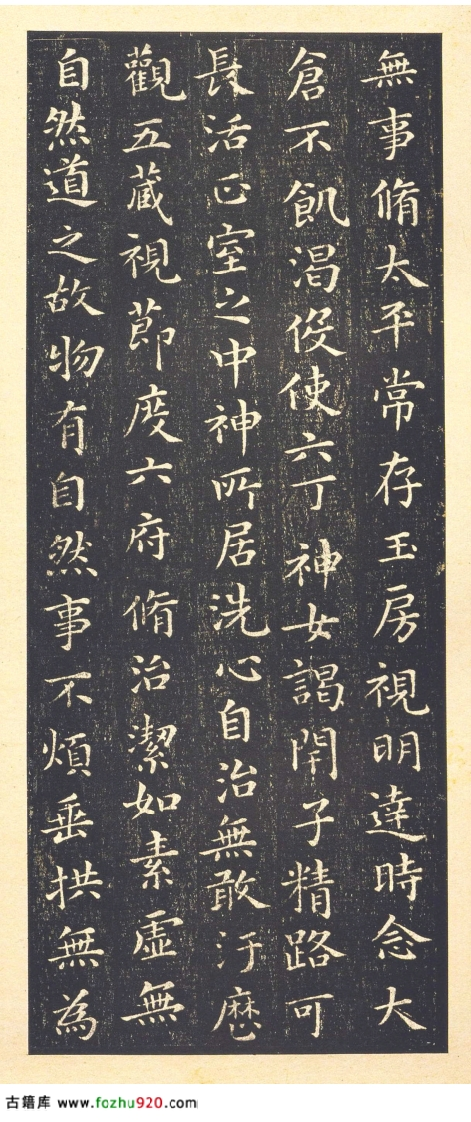 無事脩太平常存玉房視明達時念大
倉不飢渴役使六丁神女謁閉子精路可
長活正室之中神所居洗心自治無敢汙歷
觀五藏視節度六府脩治潔如素虛無
自然道之故物有自然事不煩垂拱無為
古籍库 www.fozhu920.com